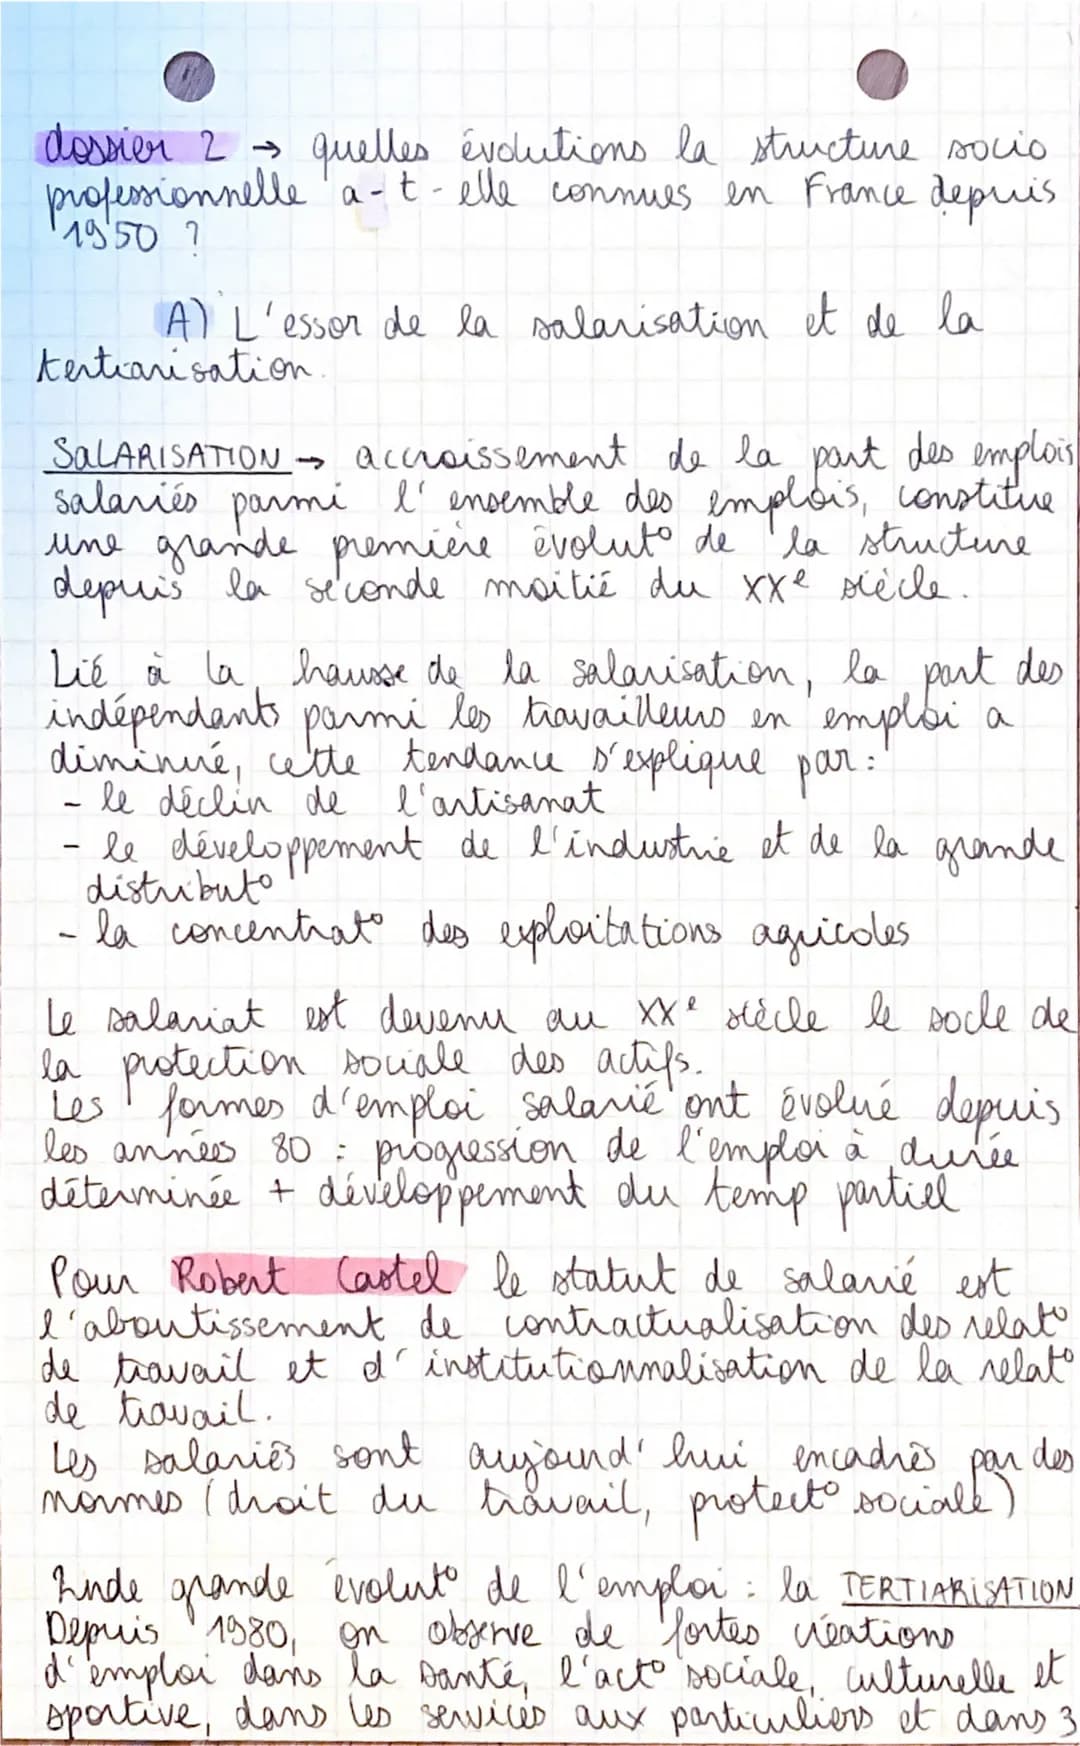 dossier 2 → quelles évolutions la structure socio
professionnelle a-t-elle connues en France depuis
1950 ?
A) L'essor de la salarisation et de la
tertiarisation.
SALARISATION → accroissement de la part des emplois
salariés parmi l'ensemble des emplois, constitue
une grande première évolut° de la structure
depuis la seconde moitié du XXe siècle.
Lié à la hausse de la salarisation, la part des
indépendants parmi les travailleurs en emploi a
diminué, cette tendance s'explique par :
- le déclin de l'artisanat
- le développement de l'industrie et de la grande
distribut°
- la concentrat° des exploitations agricoles
Le salariat est devenu au XXe siècle le socle de
la protection sociale des actifs.
Les formes d'emploi salarié ont évolué depuis
les années 80 : progression de l'emploi à durée
déterminée + développement du temp partiel
Pour Robert Castel le statut de salarié est
l'aboutissement de contractualisation des relat°
de travail et d'institutionnalisation de la relat°
de travail.
Les salariés sont aujourd'hui encadrés par des
normes (droit du travail, protect° sociale)
2nde grande évolut° de l'emploi : la TERTIARISATION
Depuis 1980, on observe de fortes créations
d'emploi dans la santé, l'act° sociale, culturelle et
sportive, dans les services aux particuliers et dans 3